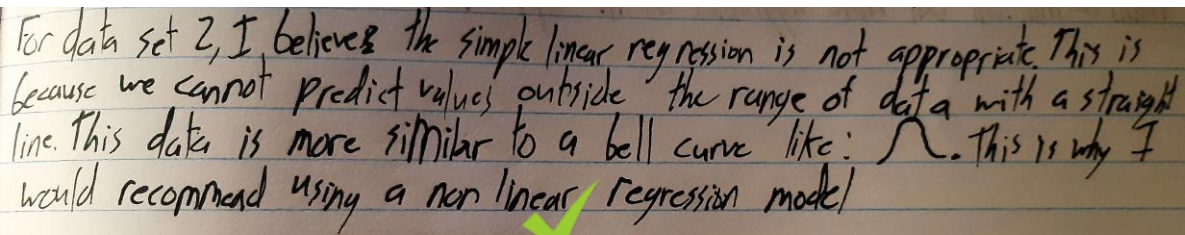 For data set 2, I believe the simple linear regression is not appropriate. This is
because we cannot predict values outside the range of data with a straight
line. This data is more similar to a bell curve like: . This is why I
would recommend using a non linear regression model